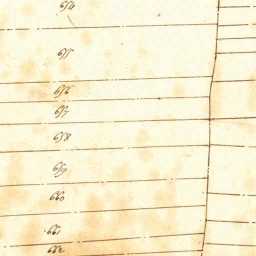 654
655
656
657
658
659
660
661
662